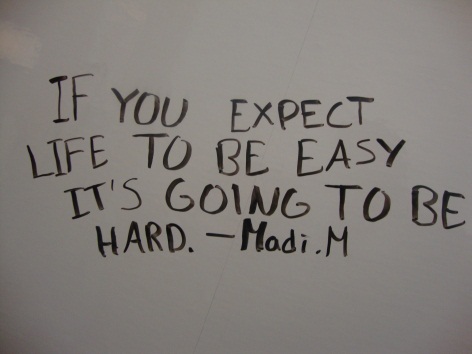 IF YOU EXPECT
LIFE TO BE EASY
IT'S GOING TO BE
HARD. - Madi.M